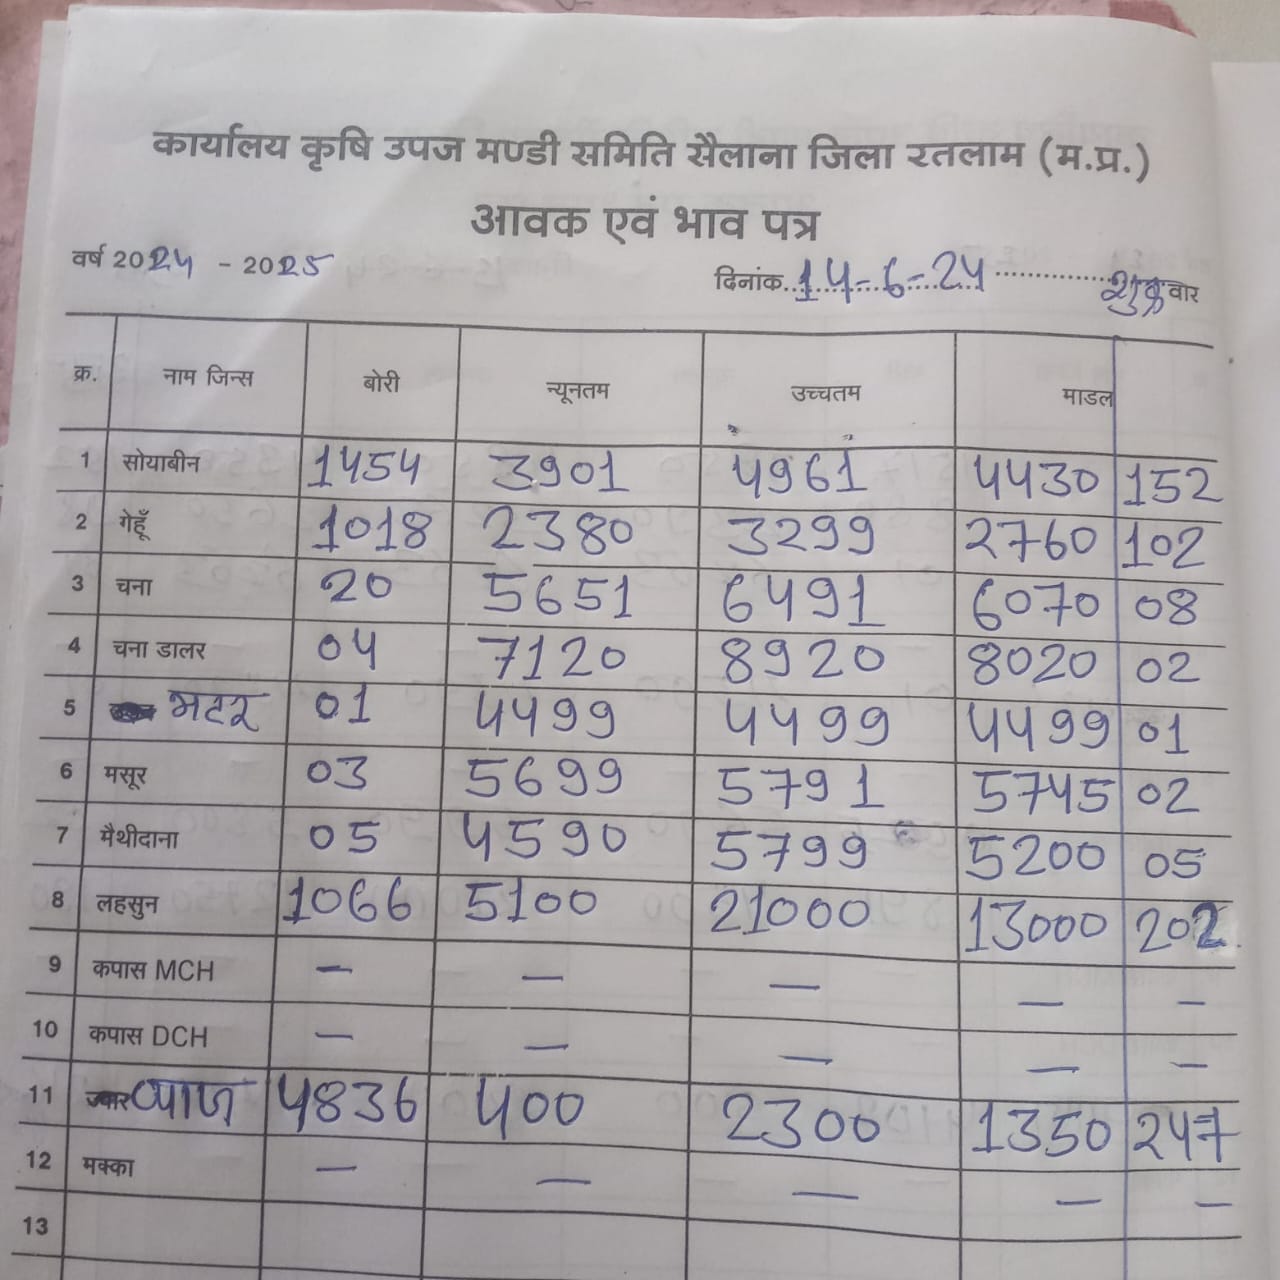 कार्यालय कृषि उपज मण्डी समिति सैलाना जिला रतलाम (म.प्र.)
आवक एवं भाव पत्र
वर्ष 2024 - 2025 दिनांक 14-6-24 शुक्रवार
क्र. नाम जिन्स बोरी न्यूनतम उच्चतम माडल
1 सोयाबीन 1454 3901 4961 4430 152
2 गेहूँ 1018 2380 3299 2760 102
3 चना 20 5651 6491 6070 08
4 चना डालर 04 7120 8920 8020 02
5 मटर 01 4499 4499 4499 01
6 मसूर 03 5699 5791 5745 02
7 मैथीदाना 05 4590 5799 5200 05
8 लहसुन 1066 5100 21000 13000 202
9 कपास MCH — — — — —
10 कपास DCH — — — — —
11 प्याज 4836 400 2300 1350 247
12 मक्का — — — — —
13